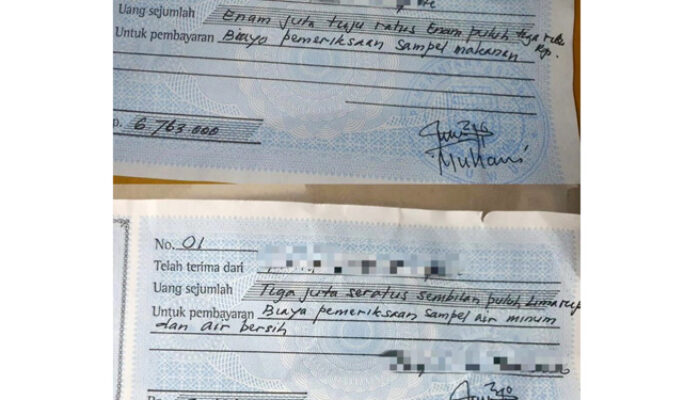 Uang sejumlah Enam juta tuju ratus Enam puluh tiga ribu
Rp.
Untuk pembayaran Biayo pemeriksaan sampel makanan
6 763.000
Muhani
No. 01
Telah terima dari
Uang sejumlah Tiga juta seratus sembilan puluh Lima
Untuk pembayaran Biaya pemeriksaan sampel air minum
dan air bersih